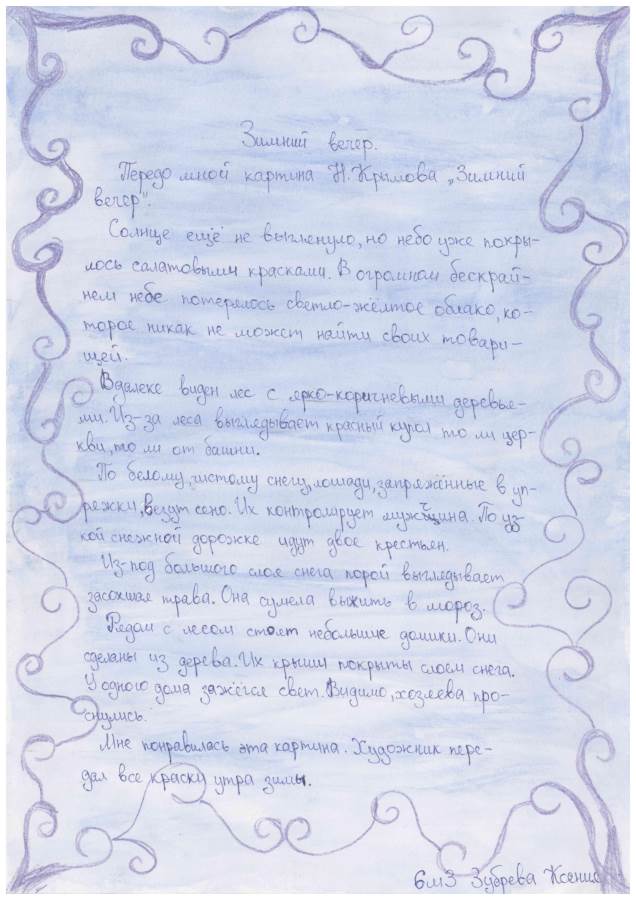 Зимний вечер.
Передо мной картина Н. Крымова „Зимний
вечер".
Солнце ещё не выглянуло, но небо уже покры-
лось салатовыми красками. В огромном бескрай-
нем небе потерялось светло-жёлтое облако, ко-
торое никак не может найти своих товари-
щей.
Вдалеке виден лес с ярко-коричневыми деревья-
ми. Из-за леса выглядывает красный купол то ли цер-
кви, то ли от башни.
По белому, чистому снегу, лошади, запряжённые в уп-
ряжки, везут сено. Их контролирует мужчина. По уз-
кой снежной дорожке идут двое крестьян.
Из-под большого слоя снега порой выглядывает
засохшая трава. Она сумела выжить в мороз.
Рядом с лесом стоят небольшие домики. Они
сделаны из дерева. Их крыши покрыты слоем снега.
У одного дома зажёгся свет. Видимо, хозяева про-
снулись.
Мне понравилась эта картина. Художник пере-
дал все краски утра зимы.
6м3 Зубрева Ксения